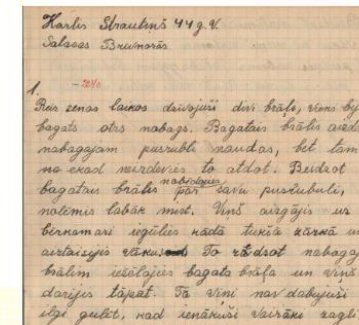 Karlis Strautiņš 44 g. v.
Salacas Brunoros
1. - 7240
Reis senos laikos dzīvojuši divi brāļi, viens by
bagats otrs nabags. Bagatais brālis aizd
nabagajam pusrubli naudas, bet tam
no mirdevies to atdot. Beidzot
nabridojies
bagatais brālis par savu pusrubuli,
nolēmis labāk mirt. Viņš aizgājis uz
iegūlies kādā tukšā zārkā un
aiztaisijis vāku. To redzot nabaga
brālim iešālojis bagata brāļa un viņš
darijis tāpat. Tā viņi nav dabujuši
ilgi gulēt, kad ienākuši vairāki zagli